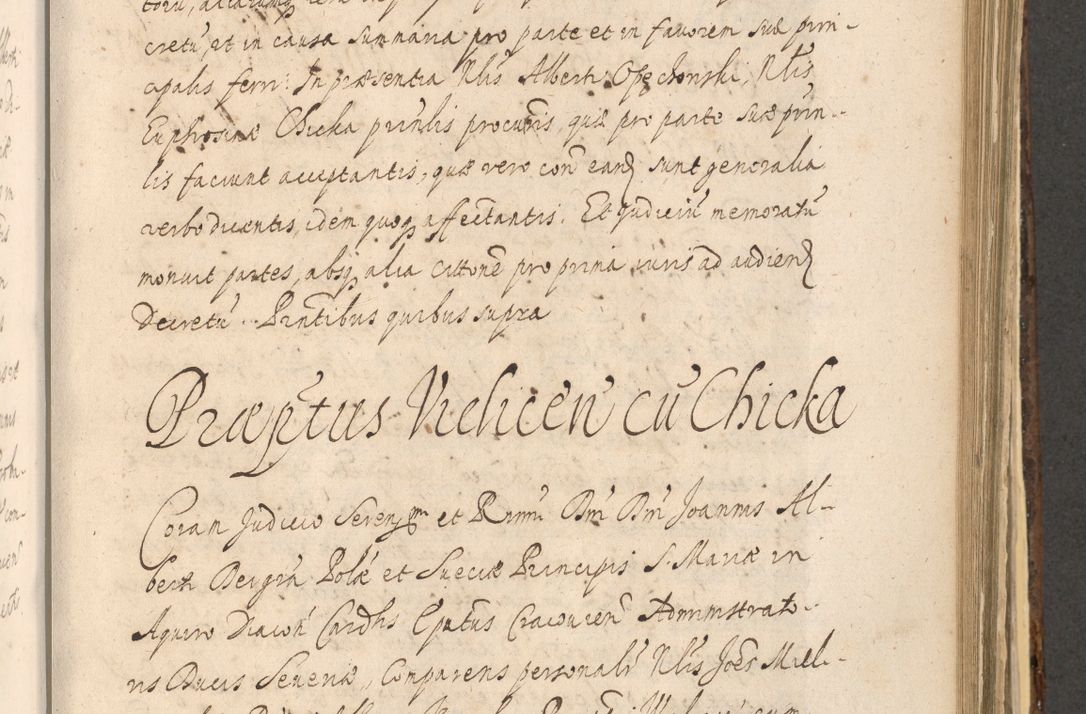 cretu, et in causa summaria pro parte et in favorem suæ prin-
cipalis ferri. In præsentia Nlis Alberti Opęchowski, Nlis
Euphrosinæ Chicka prinlis procuris, quæ pro parte suæ prin-
lis faciunt acceptantis, quæ vero con eand sunt generalia
verbo dicentis, idem quoq affectantis. Et Judiciu memoratu
monuit partes, absq alia cittone pro prima iuris ad audiend
Decretu. Præntibus quibus supra
Præptus Vielicen cu Chicka
Coram Judicio Serenssmi et Rmi Dni Dni Joannis Al-
berti Dei gra Polæ et Sueciæ Principis S. Mariæ in
Aquiro Diacon Cardlis Epatus Cracovien Administrato-
ris Ducis Severiæ, Comparens personalr Nlis Joes Miel-